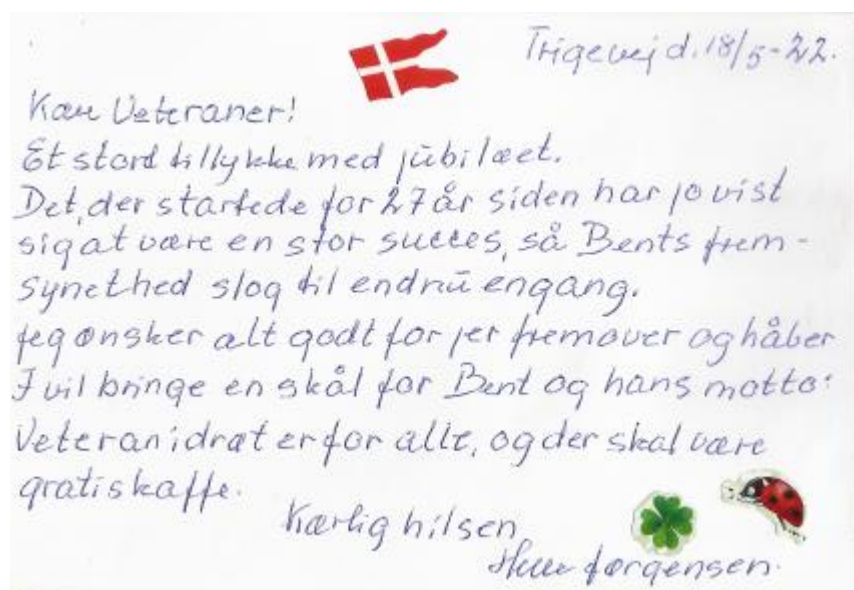 Trigevej d. 18/5-22.
Kære Veteraner!
Et stort tillykke med jubilæet.
Det, der startede for 27 år siden har jo vist
sig at være en stor succes, så Bents frem-
synethed slog til endnu engang.
Jeg ønsker alt godt for jer fremover og håber
I vil bringe en skål for Bent og hans motto:
Veteranidræt er for alle, og der skal være
gratis kaffe.
Kærlig hilsen
Jørgensen.